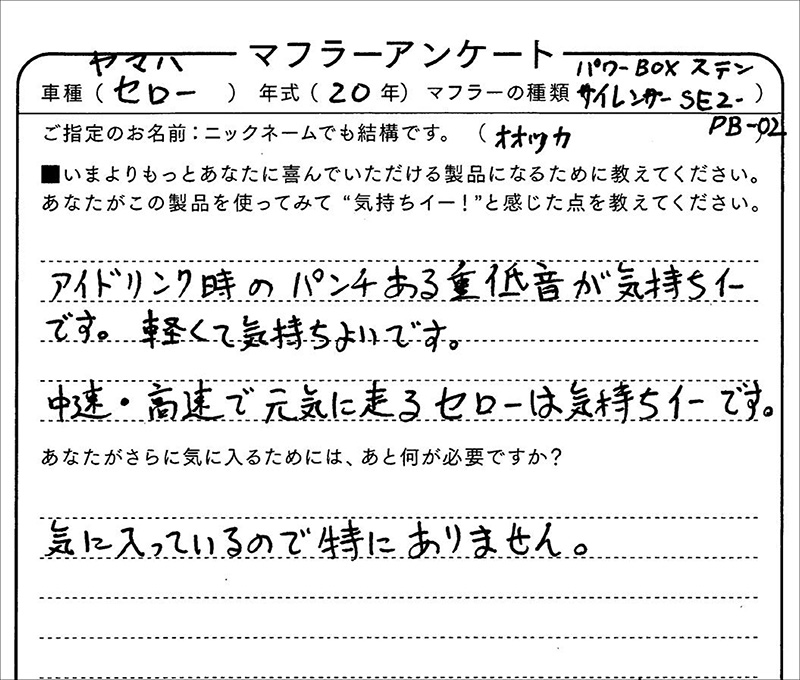 マフラーアンケート
車種（ヤマハ セロー ） 年式（20年） マフラーの種類 パワーBOX ステン サイレンサー SE2-PB-02）
ご指定のお名前：ニックネームでも結構です。（オオツカ
■いまよりもっとあなたに喜んでいただける製品になるために教えてください。
あなたがこの製品を使ってみて “気持ちイー！”と感じた点を教えてください。
アイドリンク時の パンチある重低音が気持ちイー
です。軽くて気持ちよいです。
中速・高速で元気に走るセローは気持ちイーです。
あなたがさらに気に入るためには、あと何が必要ですか？
気に入っているので特にありません。